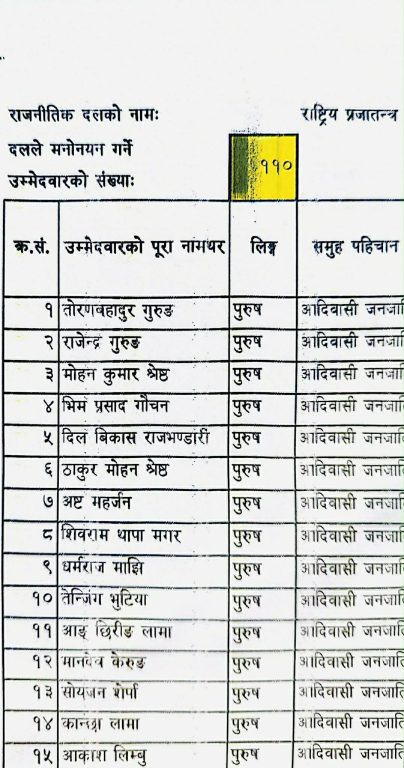 राजनीतिक दलको नामः राष्ट्रिय प्रजातन्त्र
दलले मनोनयन गर्ने
उम्मेदवारको संख्याः ११०
क्र.सं. उम्मेदवारको पूरा नामथर लिङ्ग समुह पहिचान
१ तोरणबहादुर गुरुङ पुरुष आदिवासी जनजाति
२ राजेन्द्र गुरुङ पुरुष आदिवासी जनजाति
३ मोहन कुमार श्रेष्ठ पुरुष आदिवासी जनजाति
४ भिम प्रसाद गौचन पुरुष आदिवासी जनजाति
५ दिल बिकास राजभण्डारी पुरुष आदिवासी जनजाति
६ ठाकुर मोहन श्रेष्ठ पुरुष आदिवासी जनजाति
७ अष्ट महर्जन पुरुष आदिवासी जनजाति
८ शिवराम थापा मगर पुरुष आदिवासी जनजाति
९ धर्मराज माझि पुरुष आदिवासी जनजाति
१० तेन्जिंग भुटिया पुरुष आदिवासी जनजाति
११ आङ् छिरीङ लामा पुरुष आदिवासी जनजाति
१२ मानदेव केरुङ पुरुष आदिवासी जनजाति
१३ सोयजन शेर्पा पुरुष आदिवासी जनजाति
१४ कान्छा लामा पुरुष आदिवासी जनजाति
१५ आकाश लिम्बु पुरुष आदिवासी जनजाति